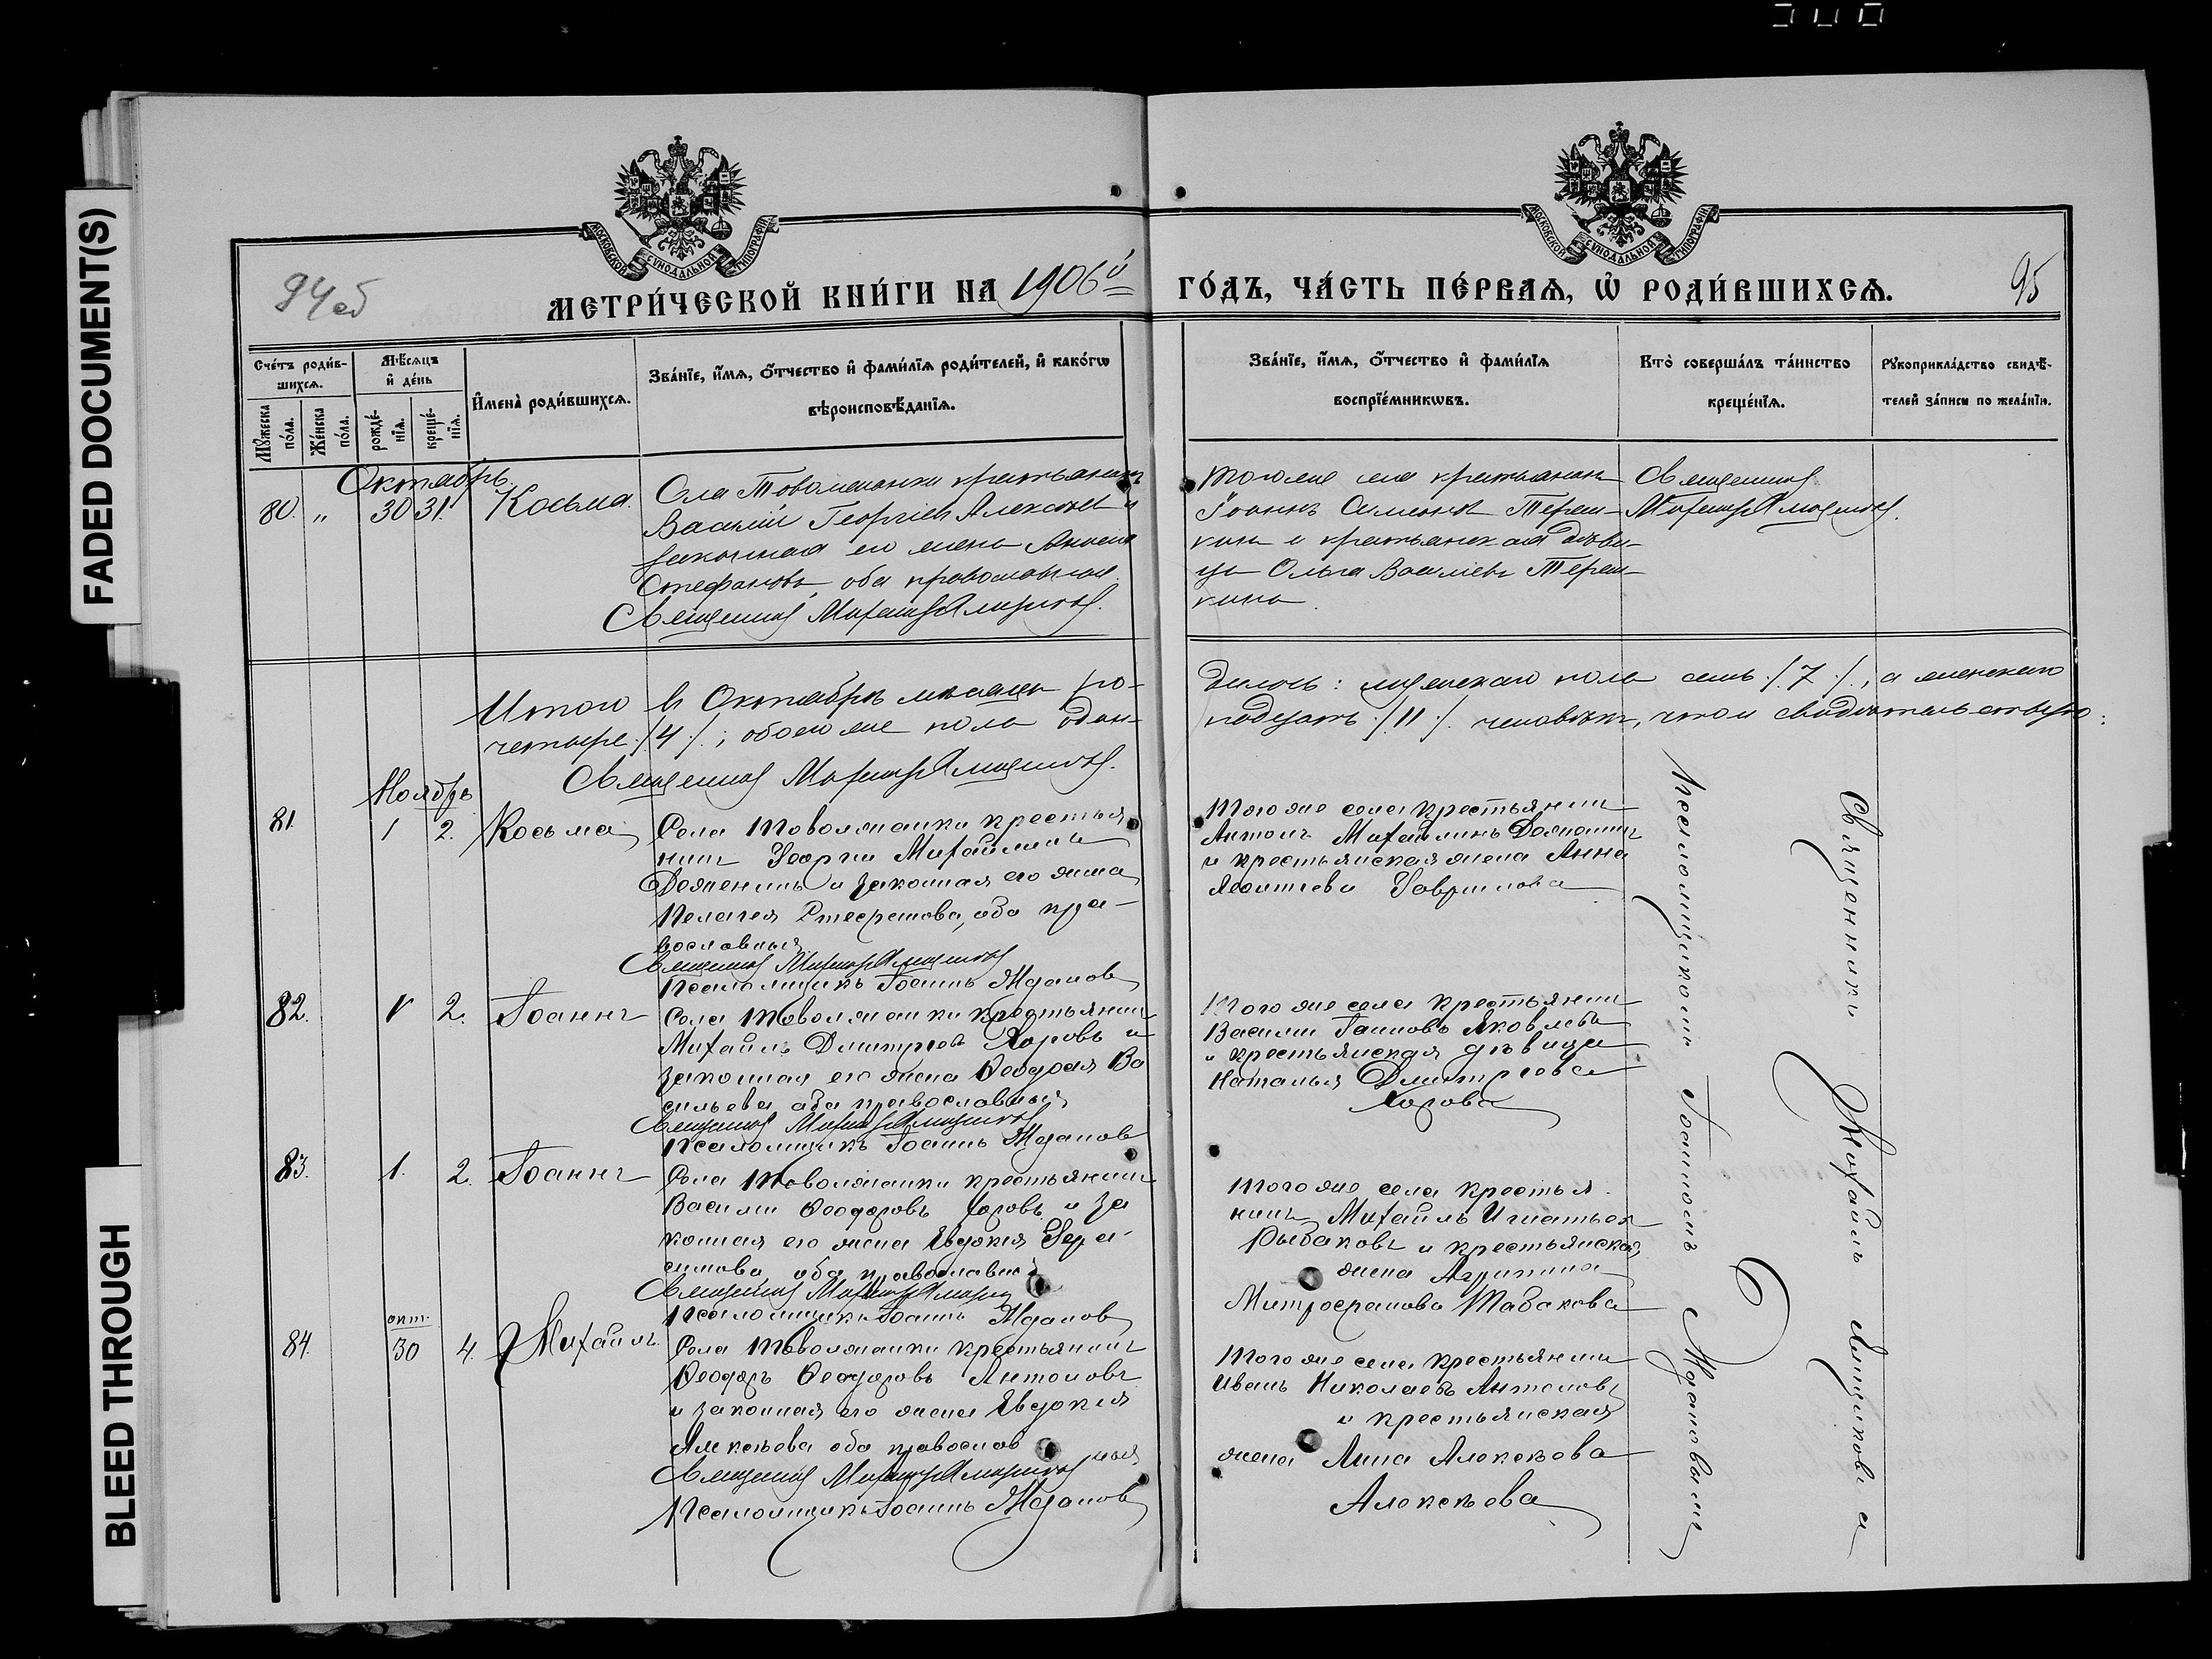 FADED DOCUMENT(S)
BLEED THROUGH
МОСКОВСКОЙ СУНОДАЛЬНОЙ ТИПОГРАФІИ
МОСКОВСКОЙ СУНОДАЛЬНОЙ ТИПОГРАФІИ
94об
МЕТРИ́ЧЕСКОЙ КНИ́ГИ НА 1906й
ГО́ДЪ, ЧА́СТЬ ПЕ́РВАѦ, Ѡ҆ РОДИ́ВШИХСѦ.
95
Сче́тъ роди́в-
шихсѧ.
Мꙋ́жеска по́ла.
Же́нска по́ла.
Мѣ́сѧцъ
и҆ де́нь
рожде́-
нїѧ.
креще́-
нїѧ.
И҆мена̀ роди́вшихсѧ.
Зва́нїе, и҆́мѧ, ѻ҆́тчество и҆ фами́лїѧ роди́телей, и҆ како́гѡ
вѣроисповѣ́данїѧ.
Зва́нїе, и҆́мѧ, ѻ҆́тчество и҆ фами́лїѧ
воспрїе́мникѡвъ.
Кто̀ соверша́лъ та́инство
креще́нїѧ.
Рꙋкоприкла́дство свидѣ́-
телей за́писи по жела́нїю.
Октябрь
80. " 30 31. Косьма.
Села Товолжанки крестьянинъ
Василій Георгіевъ Алексѣевъ и
законная его жена Анисія
Стефанова, оба православные.
Священникъ Михаилъ Ямщиковъ.
того же села крестьянинъ
Іоаннъ Симеоновъ Тереш-
кинъ и крестьянская дѣви-
ца Ольга Васильева Тереш-
кина.
Священникъ
Михаилъ Ямщиковъ.
Итого въ Октябрѣ мѣсяцѣ ро-
дилось: мужескаго пола семь /7/, а женскаго
четыре /4/; обоего же пола один-
надцать /11/ человѣкъ, что и свидѣтельствую:
Священникъ Михаилъ Ямщиковъ.
Ноябрь
81. 1 2. Косьма
Села Товолжанки крестья
нинъ Георгій Михайловъ
Доженинъ и законная его жена
Пелагея Стефанова, оба пра-
вославныя
Священникъ Михаилъ Ямщиковъ
Псаломщикъ Іоаннъ Ждановъ
Того же села крестьянинъ
Антонъ Михайловъ
и крестьянская жена Анна
Леонтіева Гаврилова
82. 1 2. Іоаннъ
Села Товолжанки крестьянинъ
Михаилъ Дмитріевъ Хоровъ и
законная его жена Ѳеодосія Ва
сильева оба православныя
Священникъ Михаилъ Ямщиковъ
Псаломщикъ Іоаннъ Ждановъ
Того же села крестьянинъ
Василій Іоанновъ Яковлевъ
и крестьянская дѣвица
Наталья Дмитріева
Хорова
83. 1. 2. Іоаннъ
Села Товолжанки крестьянинъ
Василій Ѳеодоровъ Хоровъ и за
конная его жена Евдокія Гера-
симова оба православныя
Священникъ Михаилъ Ямщиковъ
Псаломщикъ Іоаннъ Ждановъ
Того же села крестья
нинъ Михаилъ Игнатьевъ
Рыбаковъ и крестьянская
жена Агрипина
Митрофанова Табакова
84. окт. 30 4. Михаилъ
Села Товолжанки крестьянинъ
Ѳеодоръ Ѳеодоровъ Антоновъ
и законная его жена Евдокія
Алексѣева оба православ
ныя
Священникъ Михаилъ Ямщиковъ
Псаломщикъ Іоаннъ Ждановъ
Того же села крестьянинъ
Иванъ Николаевъ Антоновъ
и крестьянская
жена Анна Алексѣева
Алексѣева
Священникъ Михаилъ Ямщиковъ и
Псаломщикомъ Іоанномъ Ждановымъ